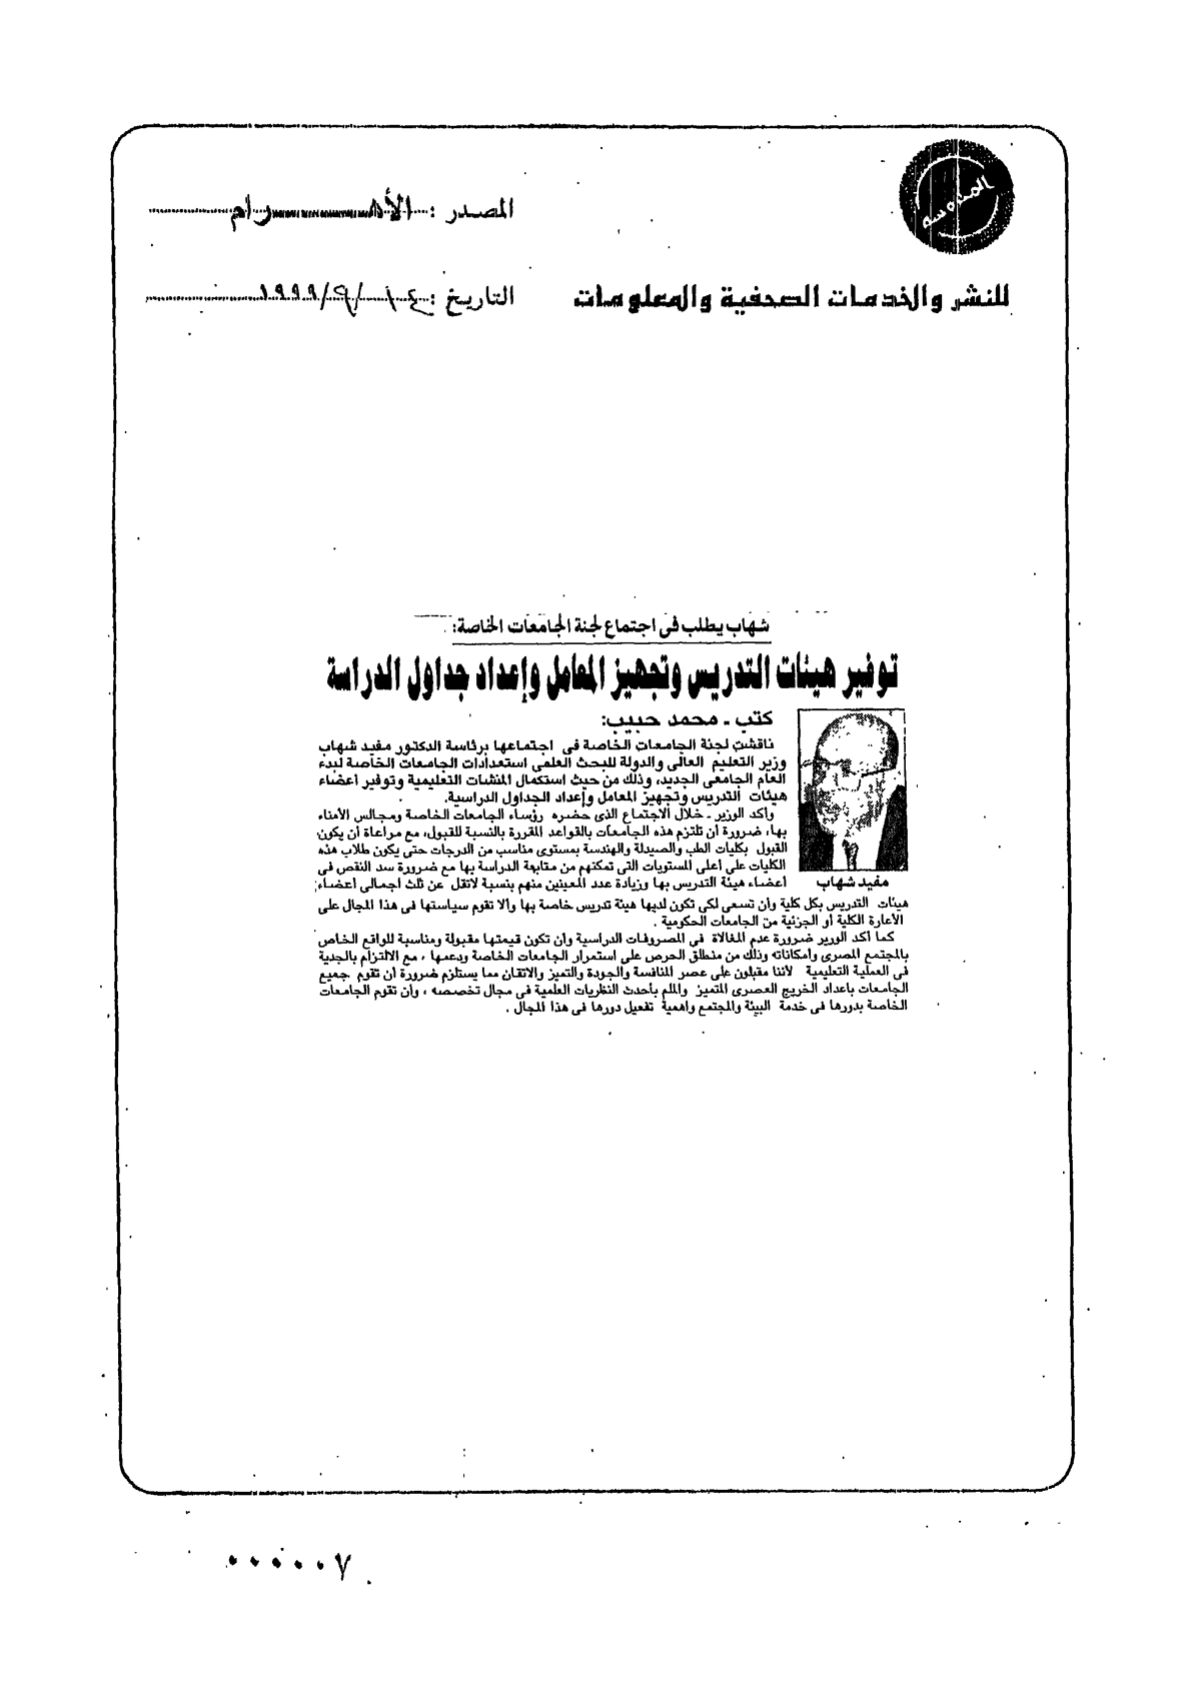 المدوسة
المصدر : الأهـــرام
للنشر والخدمات الصحفية والمعلومات
التاريخ : ١٩٩٩/٩/
شهاب يطلب فى اجتماع لجنة الجامعات الخاصة:
توفير هيئات التدريس وتجهيز المعامل وإعداد جداول الدراسة
كتب ـ محمد حبيب:
ناقشت لجنة الجامعات الخاصة فى اجتماعها برئاسة الدكتور مفيد شهاب
وزير التعليم العالى والدولة للبحث العلمى استعدادات الجامعات الخاصة لبدء
العام الجامعى الجديد، وذلك من حيث استكمال المنشآت التعليمية وتوفير أعضاء
هيئات التدريس وتجهيز المعامل وإعداد الجداول الدراسية.
وأكد الوزير ـ خلال الاجتماع الذى حضره رؤساء الجامعات الخاصة ومجالس الأمناء
بها، ضرورة أن تلتزم هذه الجامعات بالقواعد المقررة بالنسبة للقبول، مع مراعاة أن يكون
القبول بكليات الطب والصيدلة والهندسة بمستوى مناسب من الدرجات حتى يكون طلاب هذه
الكليات على أعلى المستويات التى تمكنهم من متابعة الدراسة بها مع ضرورة سد النقص فى
أعضاء هيئة التدريس بها وزيادة عدد المعينين منهم بنسبة لاتقل عن ثلث اجمالى أعضاء
مفيد شهاب
هيئات التدريس بكل كلية وأن تسعى لكى تكون لديها هيئة تدريس خاصة بها وألا تقوم سياستها فى هذا المجال على
الأعارة الكلية أو الجزئية من الجامعات الحكومية .
كما أكد الوزير ضرورة عدم المغالاة فى المصروفات الدراسية وأن تكون قيمتها مقبولة ومناسبة للواقع الخاص
بالمجتمع المصرى وامكاناته وذلك من منطلق الحرص على استمرار الجامعات الخاصة ودعمها ، مع الالتزام بالجدية
فى العملية التعليمية لأننا مقبلون على عصر المنافسة والجودة والتميز والاتقان مما يستلزم ضرورة أن تقوم جميع
الجامعات باعداد الخريج العصرى المتميز والملم بأحدث النظريات العلمية فى مجال تخصصه ، وأن تقوم الجامعات
الخاصة بدورها فى خدمة البيئة والمجتمع واهمية تفعيل دورها فى هذا المجال .
٠٠٠٠٠٧